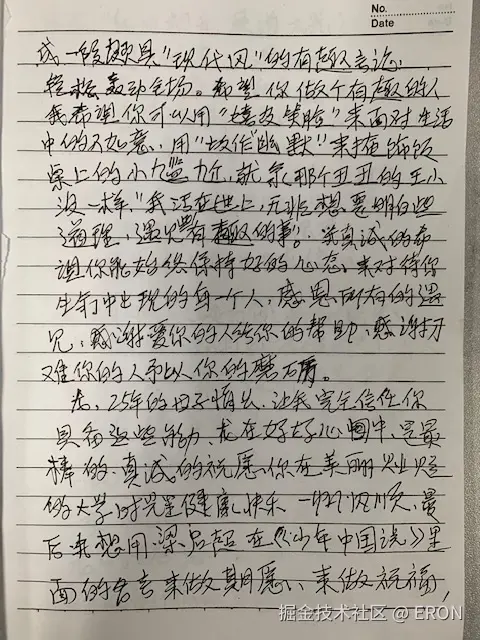 No.
Date
或一段颇具"现代风"的有趣言论,
轻松轰动全场。希望你做个有趣的人
我希望你可以用"嬉皮笑脸"来面对生活
中的不如意,用"故作幽默"来掩饰饭
桌上的小尴尬,就象那个丑丑的王小
波一样,"我活在世上,无非想要明白些
道理,遇见些有趣的事"。并真诚的希
望你能始终保持好的心态来对待你
生命中出现的每一个人,感恩所有的遇
见,感谢爱你的人给你的帮助,感谢打
难你的人予以你的磨石厉。
龙,25年的母子情长,让我完全信任你
具备这些能力,龙在好好心中,是最
棒的,真诚的祝愿你在美丽
的大学时光里健康快乐一切顺,最
后我想用梁启超在《少年中国说》里
面的名言来做期愿、来做祝福,
掘金技术社区 @ ERON